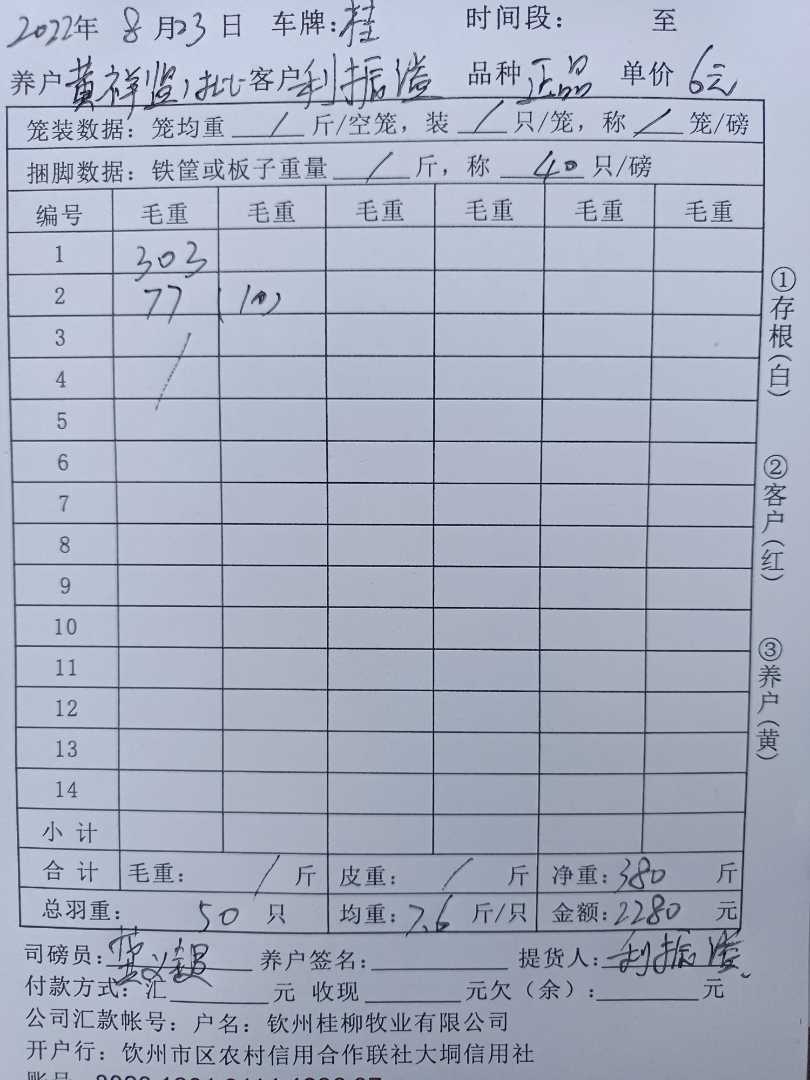 2022年 8月23日 车牌:桂 时间段: 至
养户黄祥 客户利振溢 品种 正品 单价 6元
笼装数据:笼均重 / 斤/空笼,装 / 只/笼,称 / 笼/磅
捆脚数据:铁筐或板子重量 / 斤,称 40 只/磅
编号 毛重 毛重 毛重 毛重 毛重 毛重
1 303
2 77 (10)
3 /
4
5
6
7
8
9
10
11
12
13
14
小计
合计 毛重: / 斤 皮重: / 斤 净重:380 斤
总羽重: 50 只 均重:7.6 斤/只 金额:2280 元
司磅员: 养户签名: 提货人:利振溢
付款方式:汇 元 收现 元欠(余): 元
公司汇款帐号:户名:钦州桂柳牧业有限公司
开户行:饮州市区农村信用合作联社大垌信用社
①存根(白)
②客户(红)
③养户(黄)